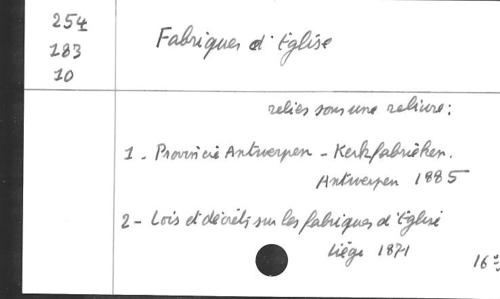 254
183
10
Fabriques d'Eglise
reliés sous une reliure:
1. Provincie Antwerpen - Kerkfabrieken.
Antwerpen 1885
2 - Lois et décrets sur les fabriques d'Eglise
Liége 1871
16°